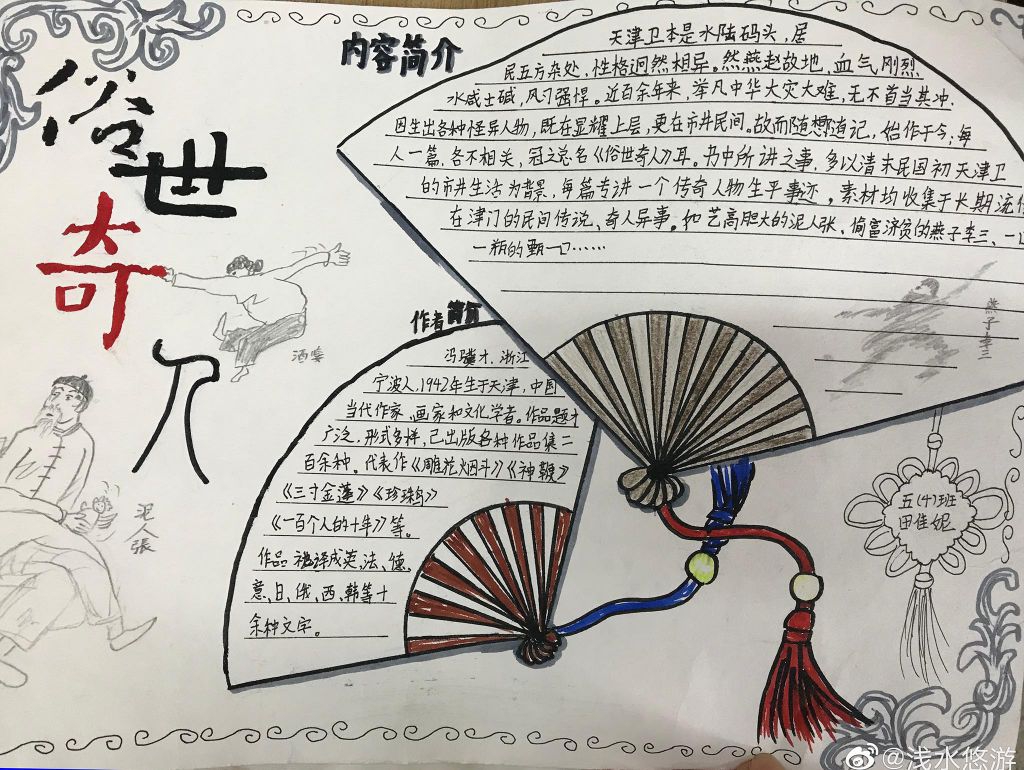 俗世奇人
内容简介
天津卫本是水陆码头，居
民五方杂处，性格迥然相异。然燕赵故地，血气刚烈
水咸土碱，风习强悍。近百余年来，举凡中华大灾大难，无不首当其冲，
因生出各种怪异人物，既在显耀上层，更在市井民间。故而随想随记，始作于今，每
人一篇，各不相关，冠之总名《俗世奇人》耳。书中所讲之事，多以清末民国初天津卫
的市井生活为背景，每篇专讲一个传奇人物生平事迹。素材均收集于长期流
在津门的民间传说、奇人异事。如艺高胆大的泥人张，偷富济贫的燕子李三、一
一瓶的甄一口……
燕子李三
作者简介
冯骥才，浙江
宁波人，1942年生于天津，中国
当代作家、画家和文化学者。作品题
广泛，形式多样，已出版各种作品集二
百余种。代表作《雕花烟斗》《神鞭》
《三寸金莲》《珍珠鸟》
《一百个人的十年》等。
作品被译成英、法、德、
意、日、俄、西、韩等十
余种文字。
酒婆
泥人張
五(4)班
田佳妮
@浅水悠游